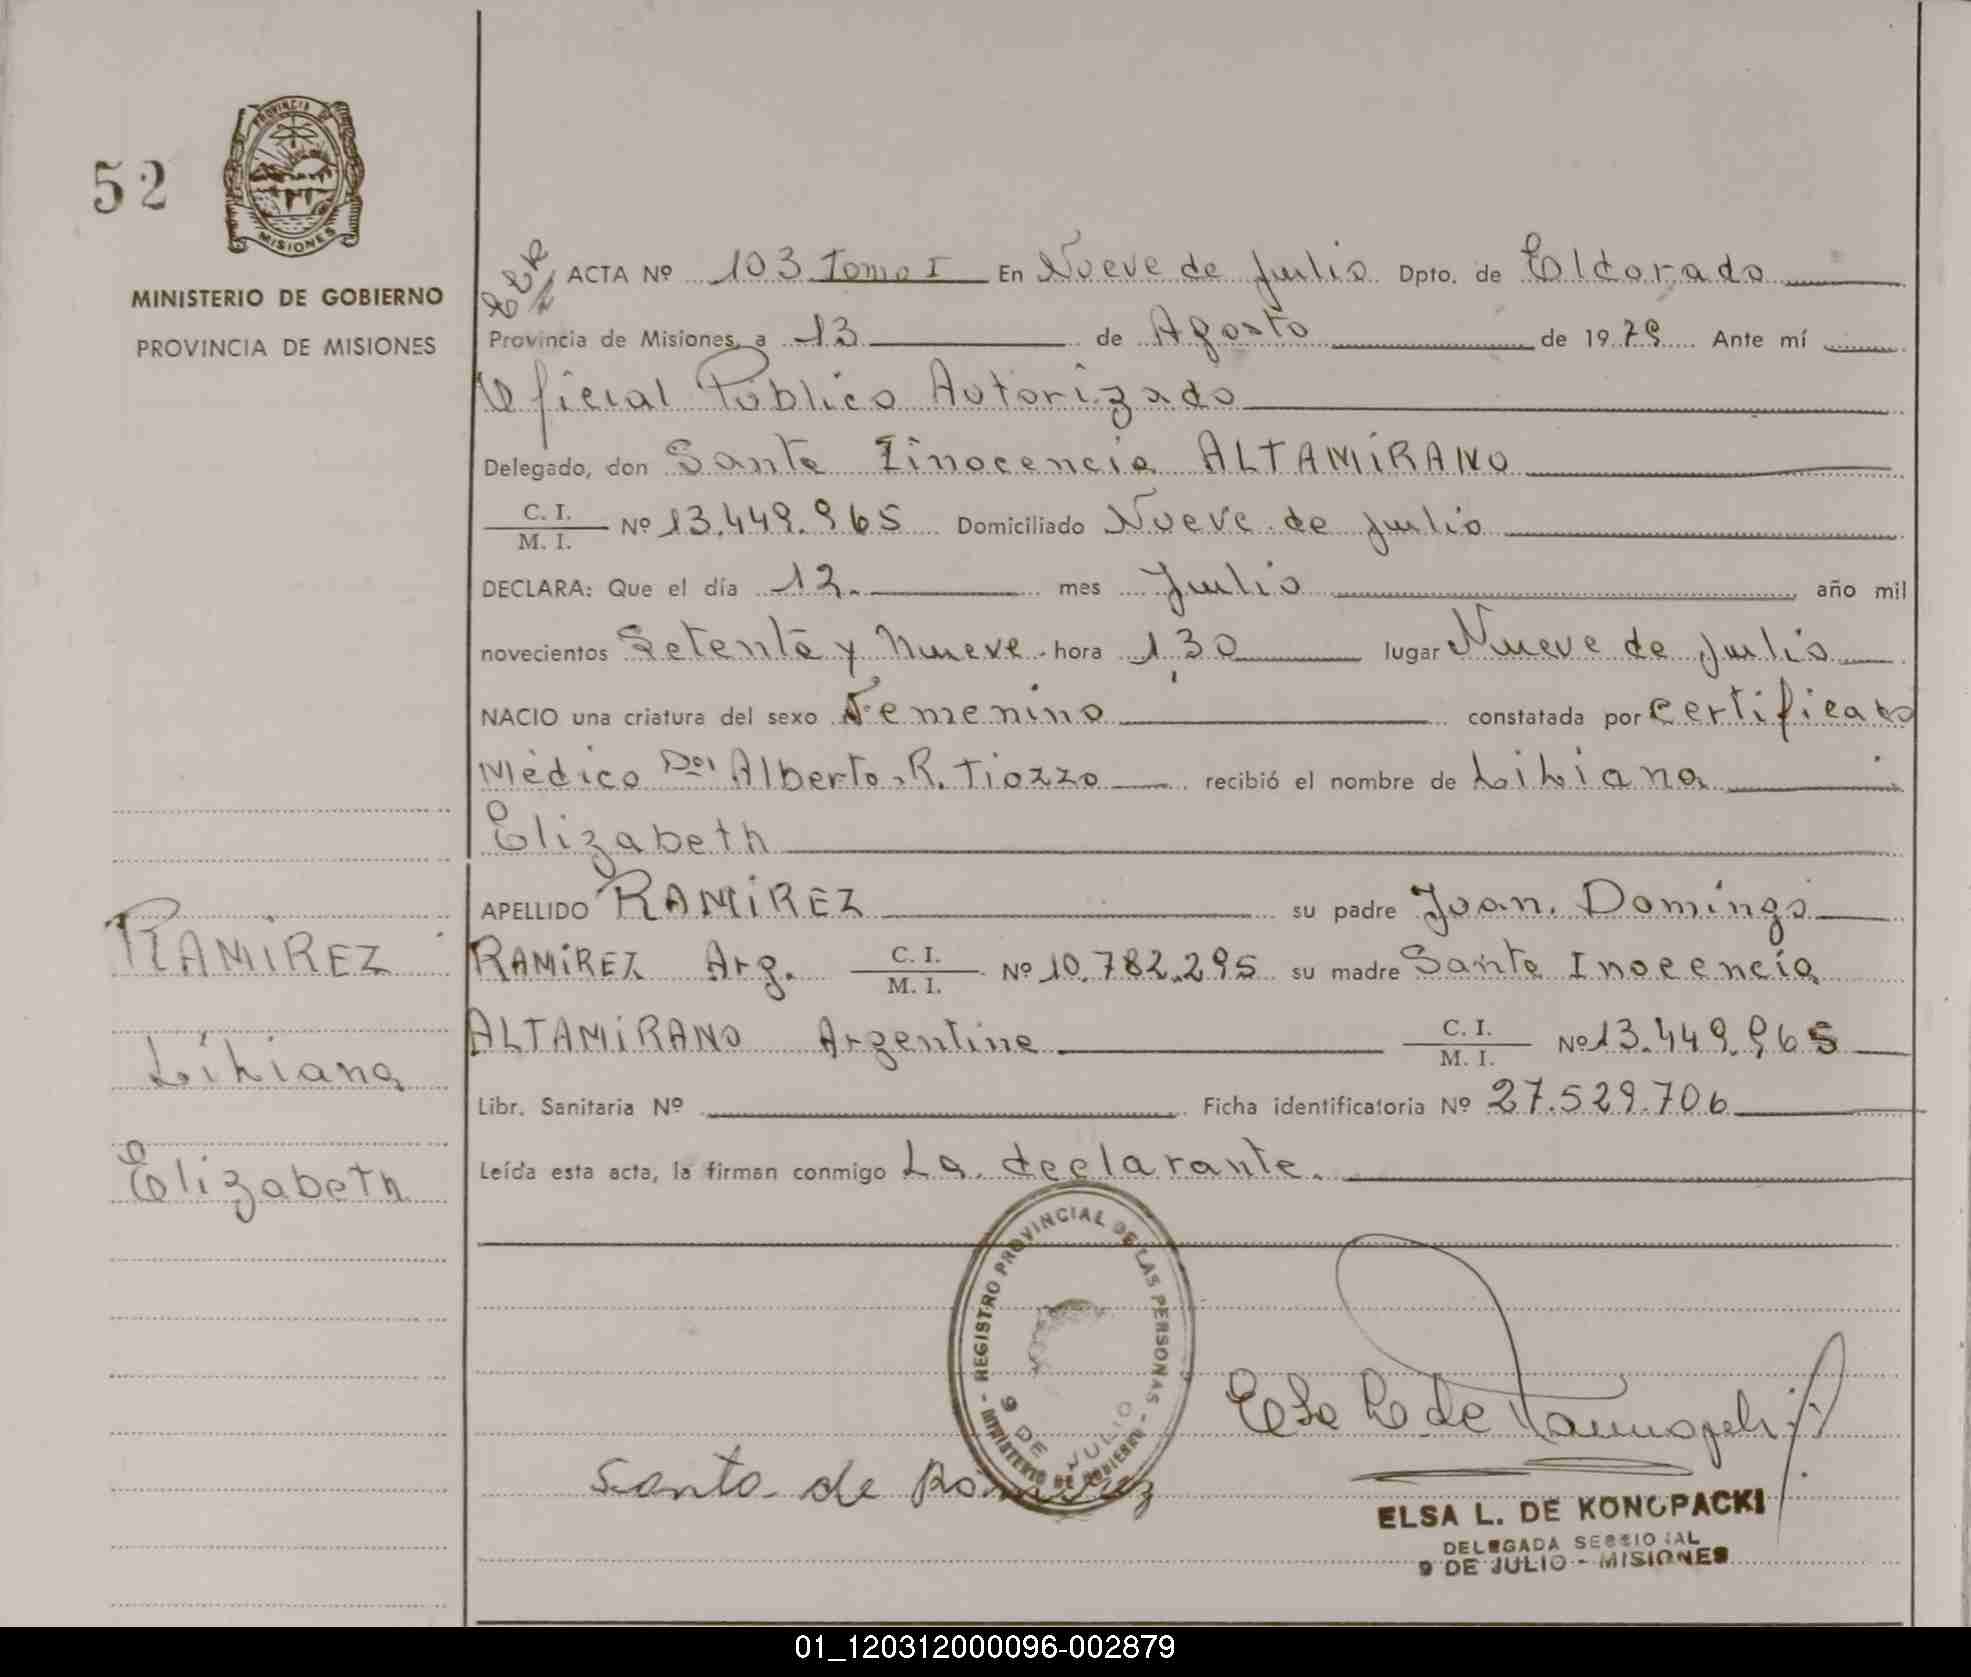 52
PROVINCIA DE
MISIONES
MINISTERIO DE GOBIERNO
PROVINCIA DE MISIONES
ACTA Nº 103 Tomo I En Nueve de Julio Dpto. de Eldorado
Provincia de Misiones, a 13 de Agosto de 1979 Ante mí
Oficial Público Autorizado
Delegado, don Santa Inocencia ALTAMIRANO
C. I.
M. I. Nº 13.449.965 Domiciliado Nueve de Julio
DECLARA: Que el día 12 mes Julio año mil
novecientos Setenta y Nueve hora 1,30 lugar Nueve de Julio
NACIO una criatura del sexo Femenino constatada por certificado
Médico Dor Alberto R. Tiozzo recibió el nombre de Liliana
Elizabeth
APELLIDO RAMIREZ su padre Juan Domingo
RAMIREZ Arg. C. I.
M. I. Nº 10.782.295 su madre Santa Inocencia
ALTAMIRANO Argentina C. I.
M. I. Nº 13.449.965
Libr. Sanitaria Nº Ficha identificatoria Nº 27.529.706
Leída esta acta, la firman conmigo La declarante.
RAMIREZ
Liliana
Elizabeth
- REGISTRO PROVINCIAL DE LAS PERSONAS -
MINISTERIO DE GOBIERNO
9 DE JULIO
Santa de Ramirez
Elsa L. de
ELSA L. DE KONOPACKI
DELEGADA SECCIONAL
9 DE JULIO - MISIONES
01_120312000096-002879